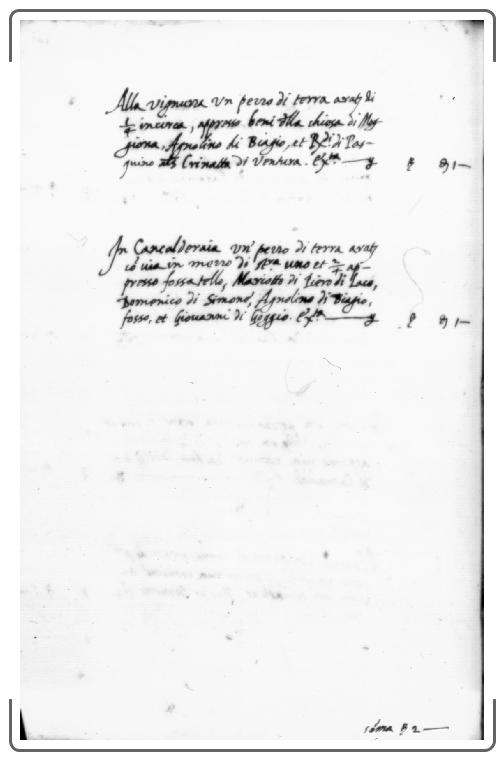 Alla vignuzza un pezzo di terra arat di
1/4 incirca, appresso beni della chiesa di Mug
giona, Agnolino di Biagio, et Rdi di Pas-
quino als Crinatta di Ventura.
In Cancaldoraia un' pezzo di terra arat
co' via in mezzo di stra uno et 2/4 ap-
presso fossatello, Mariotto di Piero di Paco,
Domenico di Simone, Agnolino di Biagio,
fosso, et Giovanni di Goggio.
sõma 2 —